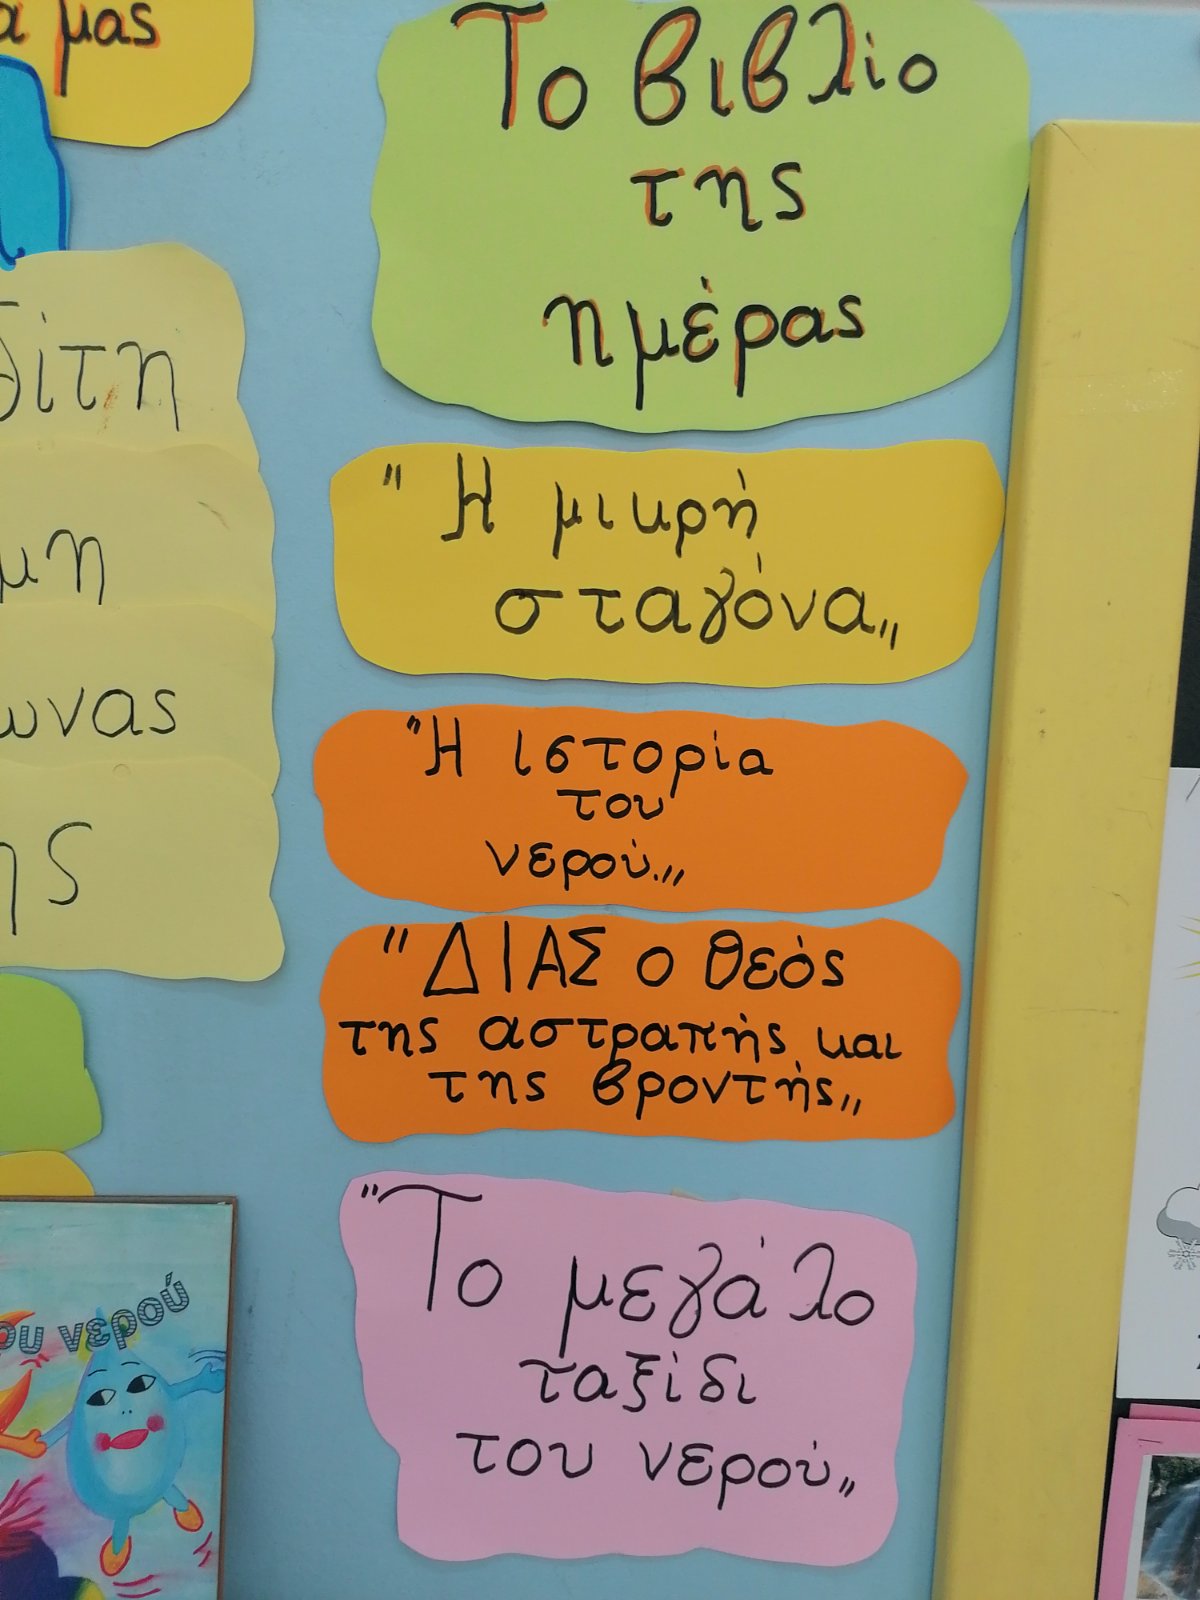 μας
Το βιβλίο
της
ημέρας
"Η μικρή
σταγόνα„
"Η ιστορία
του
νερού.„
"ΔΙΑΣ ο θεός
της αστραπής και
της βροντής„
"Το μεγάλο
ταξίδι
του νερού„
νερού